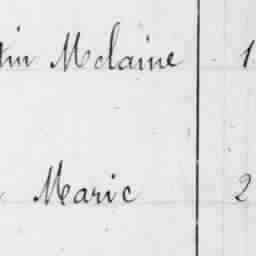 tin Melaine 1
Marie 2